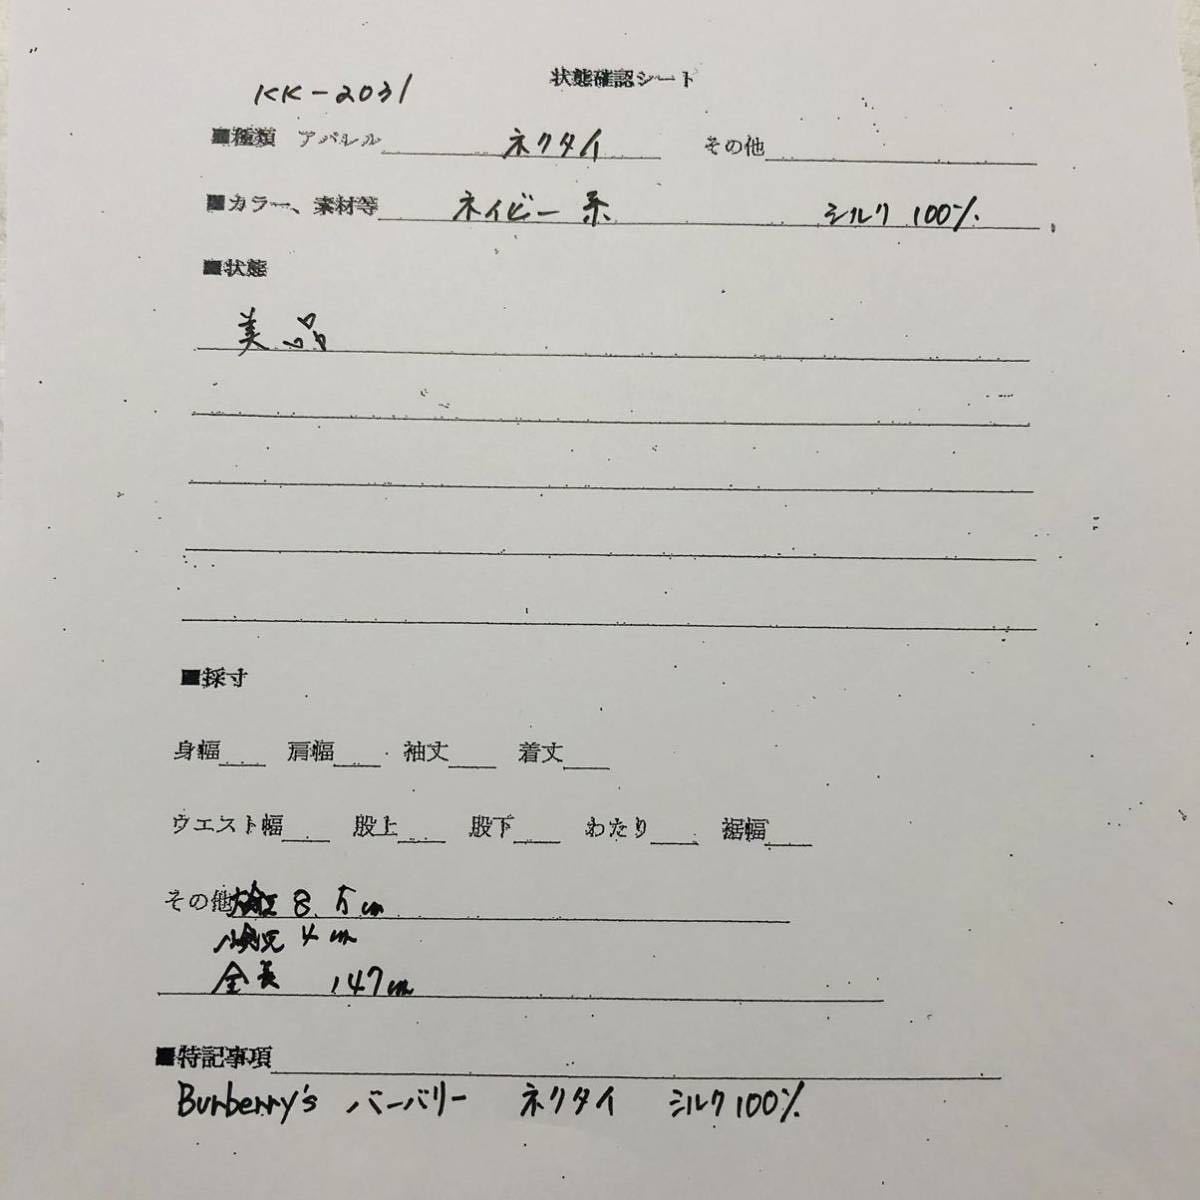 状態確認シート
KK-2031
■種類 アパレル ネクタイ その他
■カラー、素材等 ネイビー系 シルク 100%
■状態
美品
■採寸
身幅 肩幅 袖丈 着丈
ウエスト幅 股上 股下 わたり 裾幅
その他 8.5cm
4cm
全長 147cm
■特記事項
Burberry's バーバリー ネクタイ シルク100%